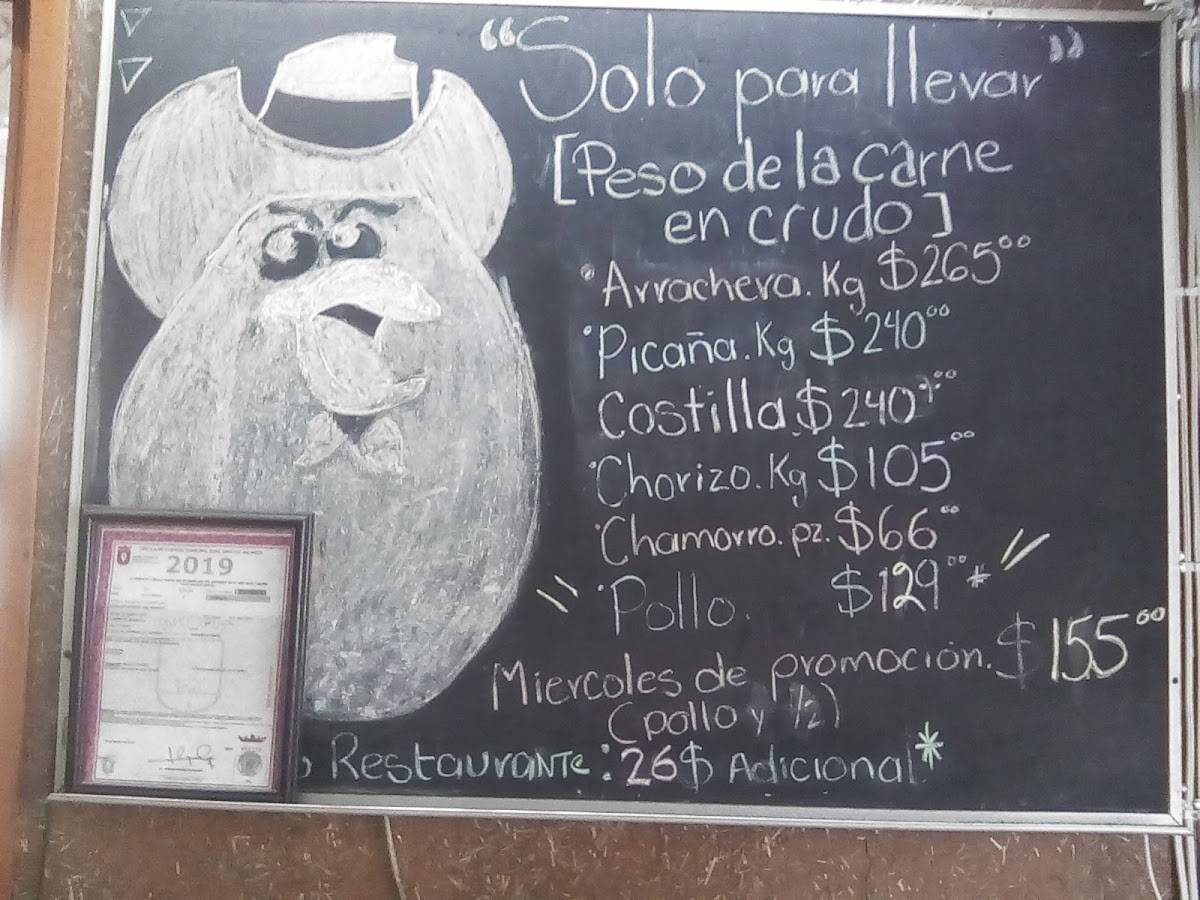 “Solo para llevar”
[Peso de la carne
en crudo]
• Arrachera. Kg $265⁰⁰
• Picaña. Kg $240⁰⁰
Costilla $240⁰⁰
• Chorizo. Kg $105⁰⁰
• Chamorro. pz. $66⁰⁰
• Pollo. $129⁰⁰*
Miercoles de promoción. $155⁰⁰
(pollo y ½)
Restaurante: 26$ Adicional*
2019